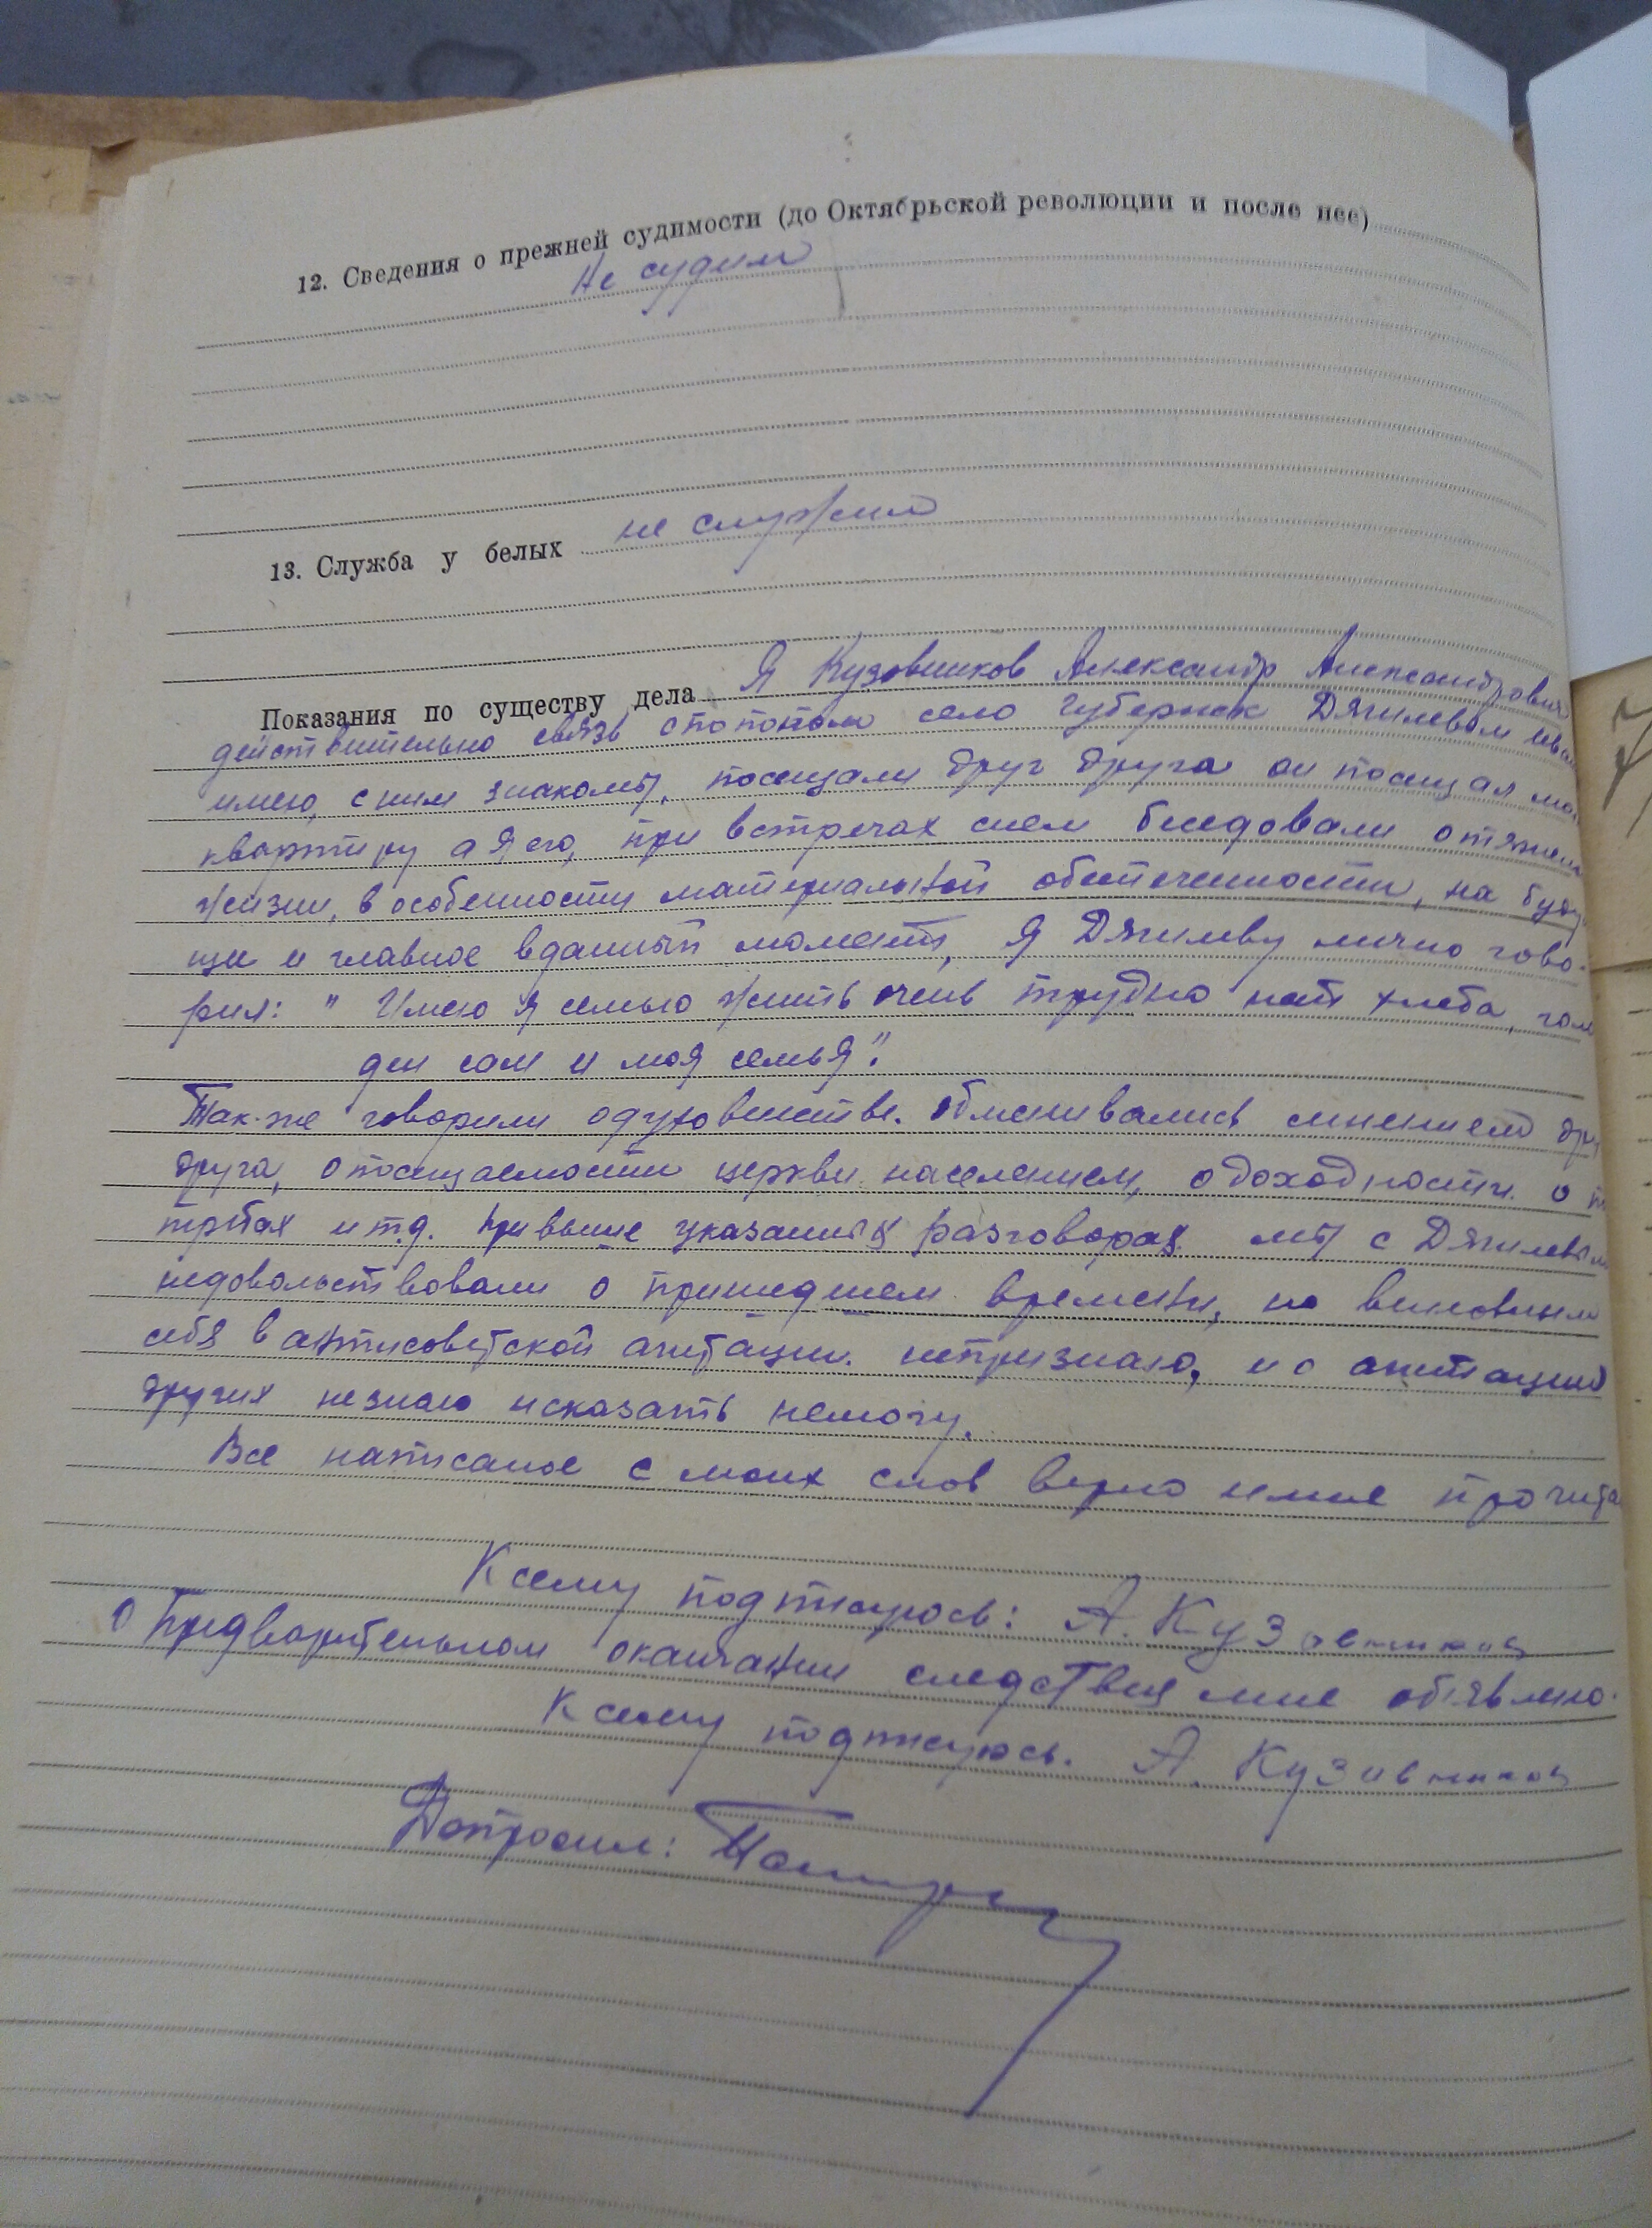 12. Сведения о прежней судимости (до Октябрьской революции и после нее)
Не судим
13. Служба у белых не служил
Показания по существу дела Я Кузовников Александр Александрович
действительно связь с попом село Губернск Дягилевым
имею, с ним знакомы, посещали друг друга он посещал мою
квартиру а я его, при встречах с ним беседовали о тяжелой
жизни, в особенности материальной обеспеченности, на буду-
щи и главное в данный момент, я Дягилеву лично гово-
рил: " Имею я семью жить очень трудно нет хлеба, голо
ден сам и моя семья".
Так-же говорили о духовенстве. Обменивались мнением друг
друга, о посещаемости церкви населением, о доходности о
требах и т.д. При выше указаных разговорах мы с Дягилевым
недовольствовали о пришедшем времени, но виновным
себя в антисоветской агитации непризнаю, и о агитации
других незнаю и сказать немогу.
Все написаное с моих слов верно и мне прочита
К сему подписуюсь: А. Кузовников
О Предварительном окончании следствия мне об'явлено.
К сему подписуюсь. А. Кузовников
Допросил: